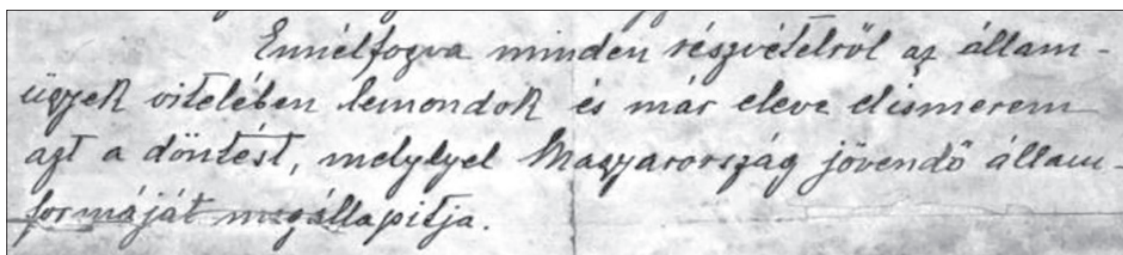 Ennélfogva minden részvételről az állam-
ügyek vitelében lemondok és már eleve elismerem
azt a döntést, melylyel Magyarország jövendő állam-
formáját megállapitja.